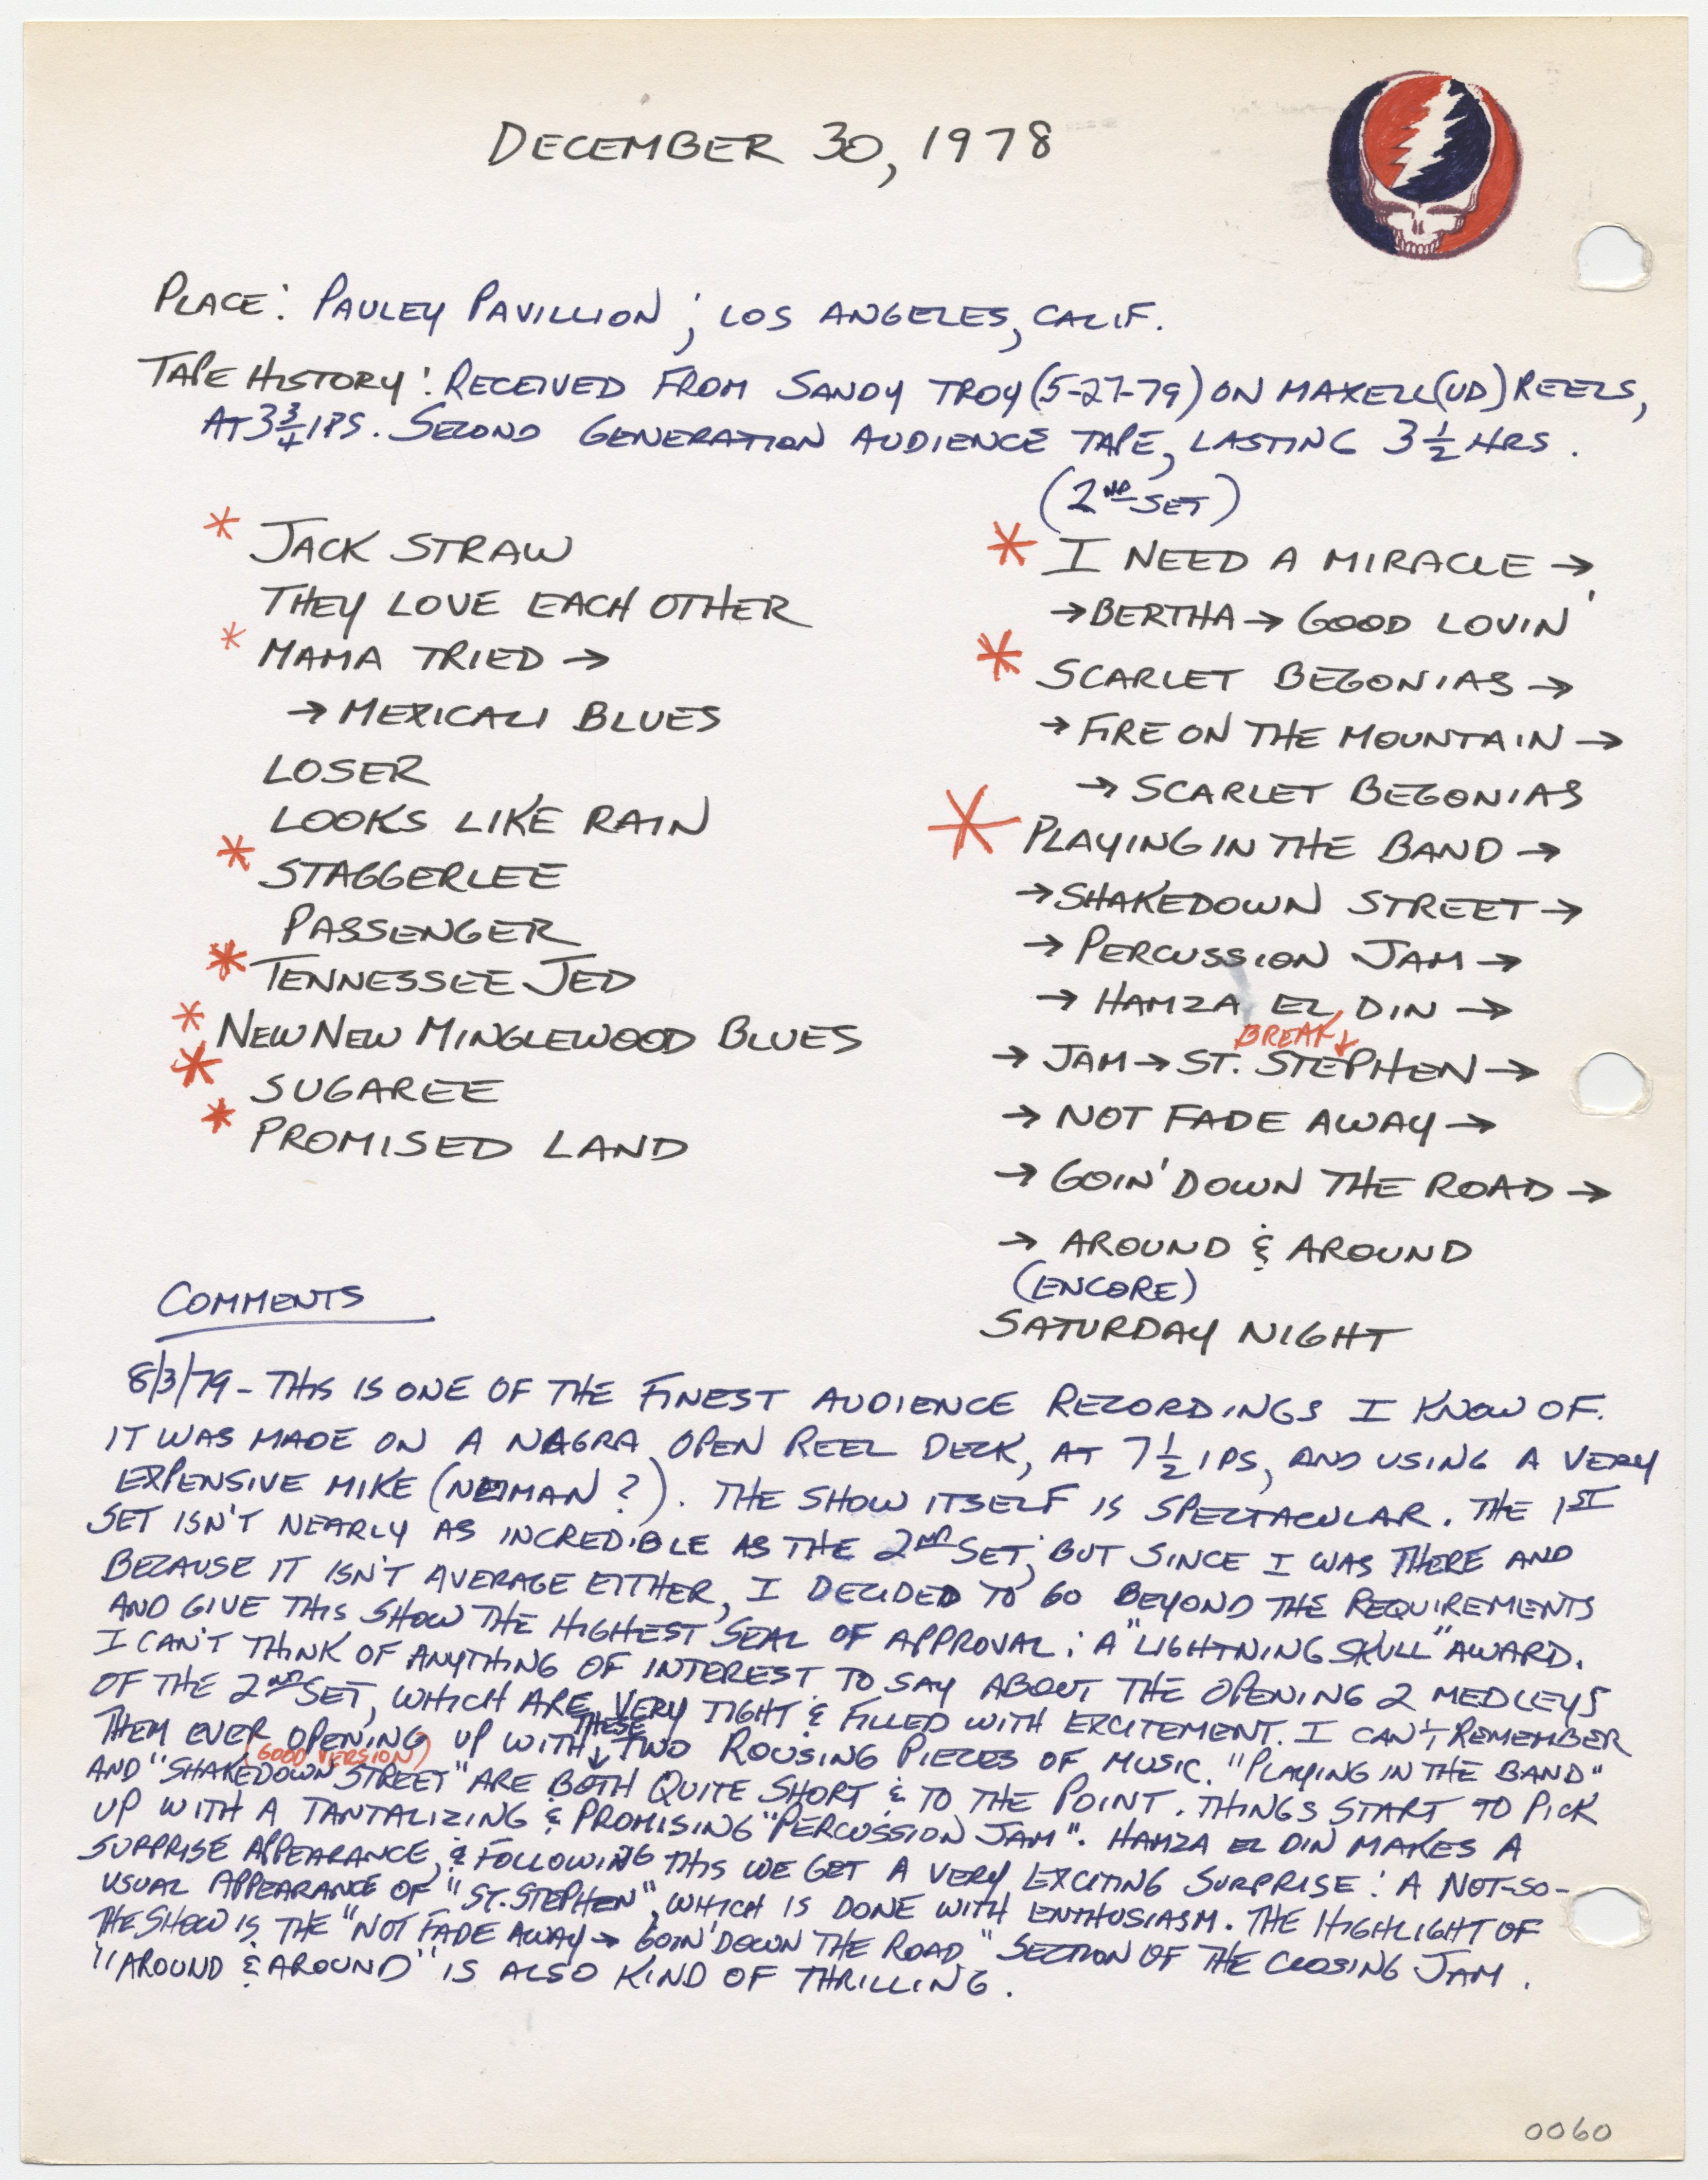 DECEMBER 30, 1978
PLACE: PAULEY PAVILLION; LOS ANGELES, CALIF.
TAPE HISTORY: RECEIVED FROM SANDY TROY (5-27-79) ON MAXELL (UD) REELS,
AT 3 3/4 IPS. SECOND GENERATION AUDIENCE TAPE, LASTING 3 1/2 HRS.
* JACK STRAW
THEY LOVE EACH OTHER
* MAMA TRIED →
→ MEXICALI BLUES
LOSER
LOOKS LIKE RAIN
* STAGGERLEE
PASSENGER
* TENNESSEE JED
* NEW NEW MINGLEWOOD BLUES
* SUGAREE
* PROMISED LAND
(2ND SET)
* I NEED A MIRACLE →
→ BERTHA → GOOD LOVIN'
* SCARLET BEGONIAS →
→ FIRE ON THE MOUNTAIN →
→ SCARLET BEGONIAS
* PLAYING IN THE BAND →
→ SHAKEDOWN STREET →
→ PERCUSSION JAM →
→ HAMZA EL DIN →
BREAK ↓
→ JAM → ST. STEPHEN →
→ NOT FADE AWAY →
→ GOIN' DOWN THE ROAD →
→ AROUND & AROUND
(ENCORE)
SATURDAY NIGHT
COMMENTS
8/3/79 - THIS IS ONE OF THE FINEST AUDIENCE RECORDINGS I KNOW OF.
IT WAS MADE ON A NAGRA OPEN REEL DECK, AT 7 1/2 IPS, AND USING A VERY
EXPENSIVE MIKE (NEIMAN?). THE SHOW ITSELF IS SPECTACULAR. THE 1ST
SET ISN'T NEARLY AS INCREDIBLE AS THE 2ND SET; BUT SINCE I WAS THERE AND
BECAUSE IT ISN'T AVERAGE EITHER, I DECIDED TO GO BEYOND THE REQUIREMENTS
AND GIVE THIS SHOW THE HIGHEST SEAL OF APPROVAL: A "LIGHTNING SKULL" AWARD.
I CAN'T THINK OF ANYTHING OF INTEREST TO SAY ABOUT THE OPENING 2 MEDLEYS
OF THE 2ND SET, WHICH ARE VERY TIGHT & FILLED WITH EXCITEMENT. I CAN'T REMEMBER
THEM EVER OPENING UP WITH THESE ↓ TWO ROUSING PIECES OF MUSIC. "PLAYING IN THE BAND"
(GOOD VERSION)
AND "SHAKEDOWN STREET" ARE BOTH QUITE SHORT & TO THE POINT. THINGS START TO PICK
UP WITH A TANTALIZING & PROMISING "PERCUSSION JAM". HAMZA EL DIN MAKES A
SURPRISE APPEARANCE, & FOLLOWING THIS WE GET A VERY EXCITING SURPRISE: A NOT-SO-
USUAL APPEARANCE OF "ST. STEPHEN", WHICH IS DONE WITH ENTHUSIASM. THE HIGHLIGHT OF
THE SHOW IS THE "NOT FADE AWAY → GOIN' DOWN THE ROAD" SECTION OF THE CLOSING JAM.
"AROUND & AROUND" IS ALSO KIND OF THRILLING.
0060